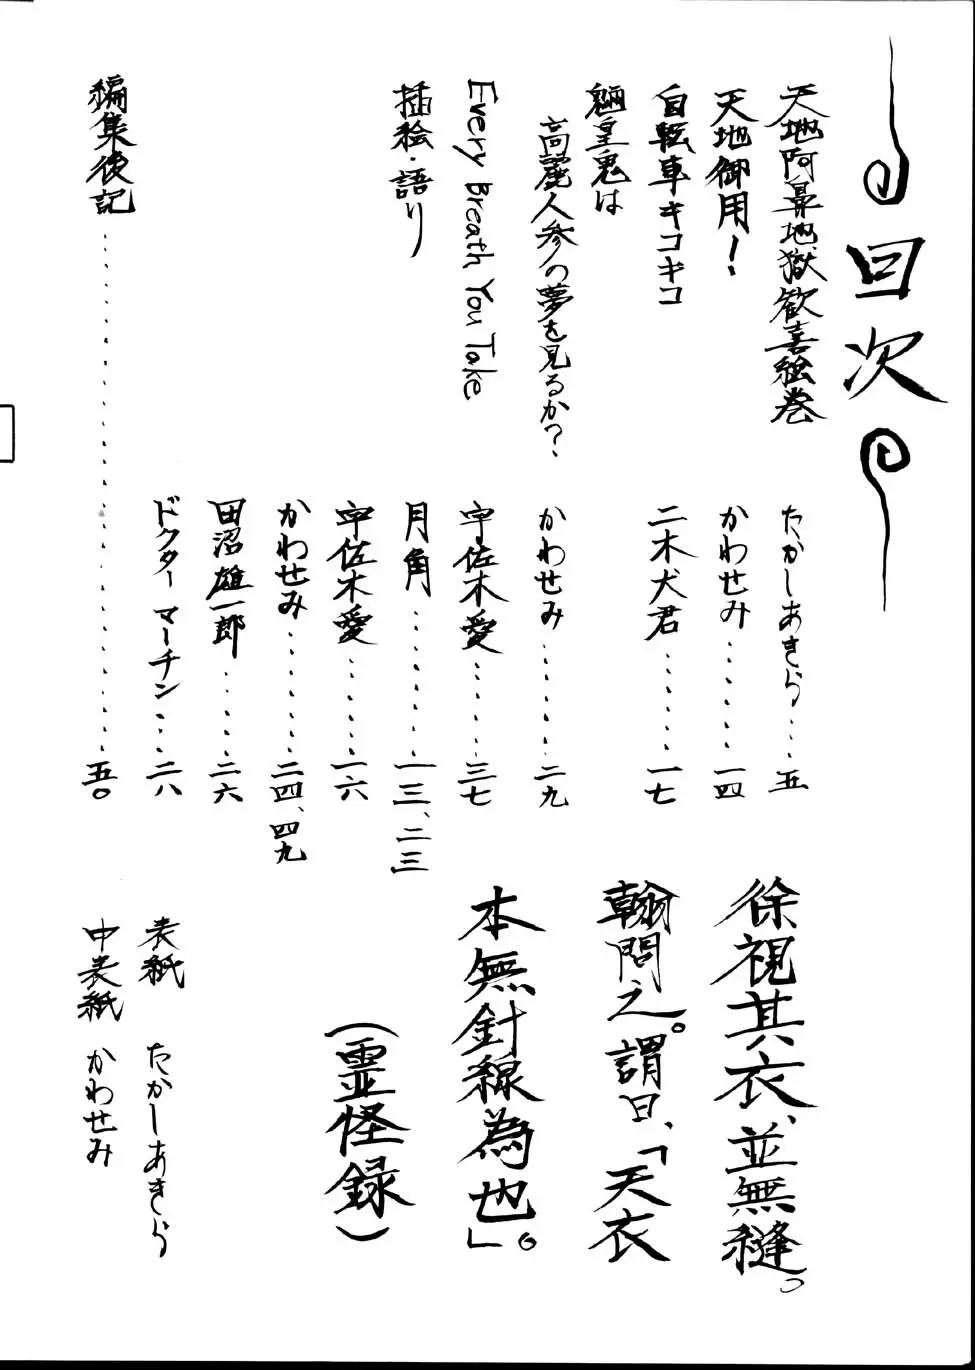 目次
天地阿鼻地獄歓喜絵巻 たかしあきら……五
天地御用! かわせみ……一四
自転車キコキコ 二木犬君……一七
魎皇鬼は
高麗人参の夢を見るか? かわせみ……二九
Every Breath You Take 宇佐木愛……三七
挿絵・語り 月角……一三、二三
宇佐木愛……一六
かわせみ……二四、四九
田沼雄一郎……二六
ドクターマーチン……二八
編集後記……五〇
徐視其衣、並無縫。
翰問之。謂曰、「天衣
本無針線為也」。
(霊怪録)
表紙 たかしあきら
中表紙 かわせみ